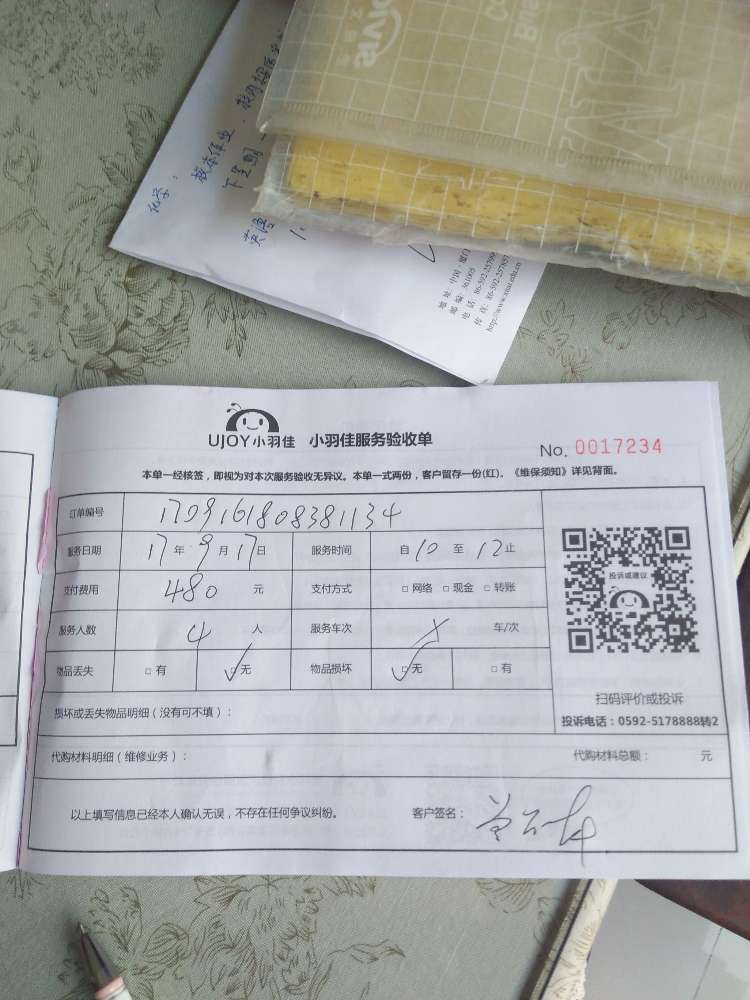 化学：
校本作业
下定期
英语
1.
地 址：中国·厦门
邮 编：361005
http://www.xmu.edu.cn
UJOY小羽佳 小羽佳服务验收单
No. 0017234
本单一经核签，即视为对本次服务验收无异议。本单一式两份，客户留存一份(红)。《维保须知》详见背面。
订单编号 1709161808381134
服务日期 17 年 9 月 17 日 服务时间 自 10 至 12 止
支付费用 480 元 支付方式 □ 网络 □ 现金 □ 转账
服务人数 4 人 服务车次 X 车/次
物品丢失 □ 有 □ 无 物品损坏 □ 无 □ 有
投诉或建议
扫码评价或投诉
投诉电话：0592-5178888转2
损坏或丢失物品明细（没有可不填）：
代购材料明细（维修业务）： 代购材料总额： 元
以上填写信息已经本人确认无误，不存在任何争议纠纷。 客户签名：